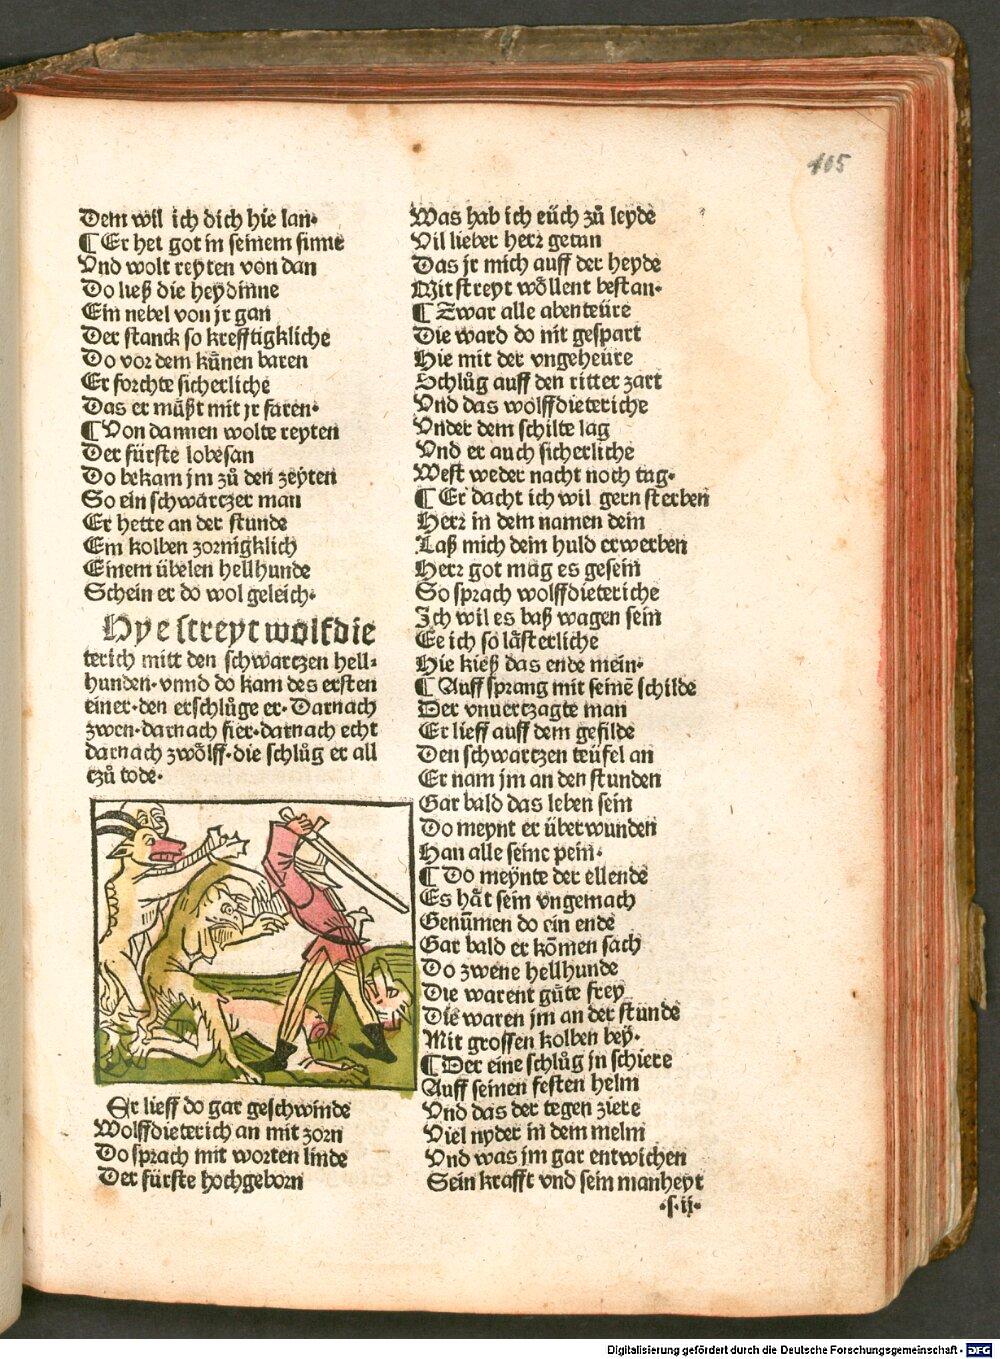 105
Dem wil ich dich hie lan·
¶ Er het got in seinem sinne
Vnd wolt reyten von dan
Do ließ die heydinne
Ein nebel von jr gan
Der stanck so krefftigkliche
Do vor dem kuͤnen baren
Er forchte sicherliche
Das er muͤßt mit jr faren·
¶ Von dannen wolte reyten
Der fürste lobesan
Do bekam jm zuͦ den zeyten
So ein schwartzer man
Er hette an der stunde
Ein kolben zornigklich
Einem übelen hellhunde
Schein er do wol geleich·
Hye streyt wolfdie
terich mitt den schwartzen hell⸗
hunden·vnnd do kam des ersten
einer·den erschluͤge er·Darnach
zwen·darnach fier·darnach echt
darnach zwoͤlff·die schluͦg er all
tzuͦ tode·
Er lieff do gar geschwinde
Wolffdieterich an mit zorn
Do sprach mit worten linde
Der fürste hochgeborn
Was hab ich eüch zuͦ leyde
Vil lieber herꝛ getan
Das jr mich auff der heyde
Mit streyt woͤllent bestan·
¶ Zwar alle abenteüre
Die ward do nit gespart
Hie mit der vngeheüre
Schluͦg auff den ritter zart
Vnd das wolffdieteriche
Vnder dem schilte lag
Vnd er auch sicherliche
West weder nacht noch tag·
¶ Er dacht ich wil gern sterben
Herꝛ in dem namen dein
Laß mich dein huld erwerben
Herꝛ got mag es gesein
So sprach wolffdieteriche
Ich wil es baß wagen sein
Ee ich so laͤsterliche
Hie kieß das ende mein·
¶ Auff sprang mit seinē schilde
Der vnuertzagte man
Er lieff auff dem gefilde
Den schwartzen teüfel an
Er nam jm an den stunden
Gar bald das leben sein
Do meynt er überwunden
Han alle seine pein·
¶ Do meynte der ellende
Es haͤt sein vngemach
Genūmen do ein ende
Gar bald er kōmen sach
Do zwene hellhunde
Die warent guͦte frey
Die waren jm an der stunde
Mit grossen kolben bey·
¶ Der eine schluͦg jn schiere
Auff seinen festen helm
Vnd das der tegen ziere
Viel nyder in dem melm
Vnd was jm gar entwichen
Sein krafft vnd sein manheyt
·s·ij·
Digitalisierung gefördert durch die Deutsche Forschungsgemeinschaft - DFG